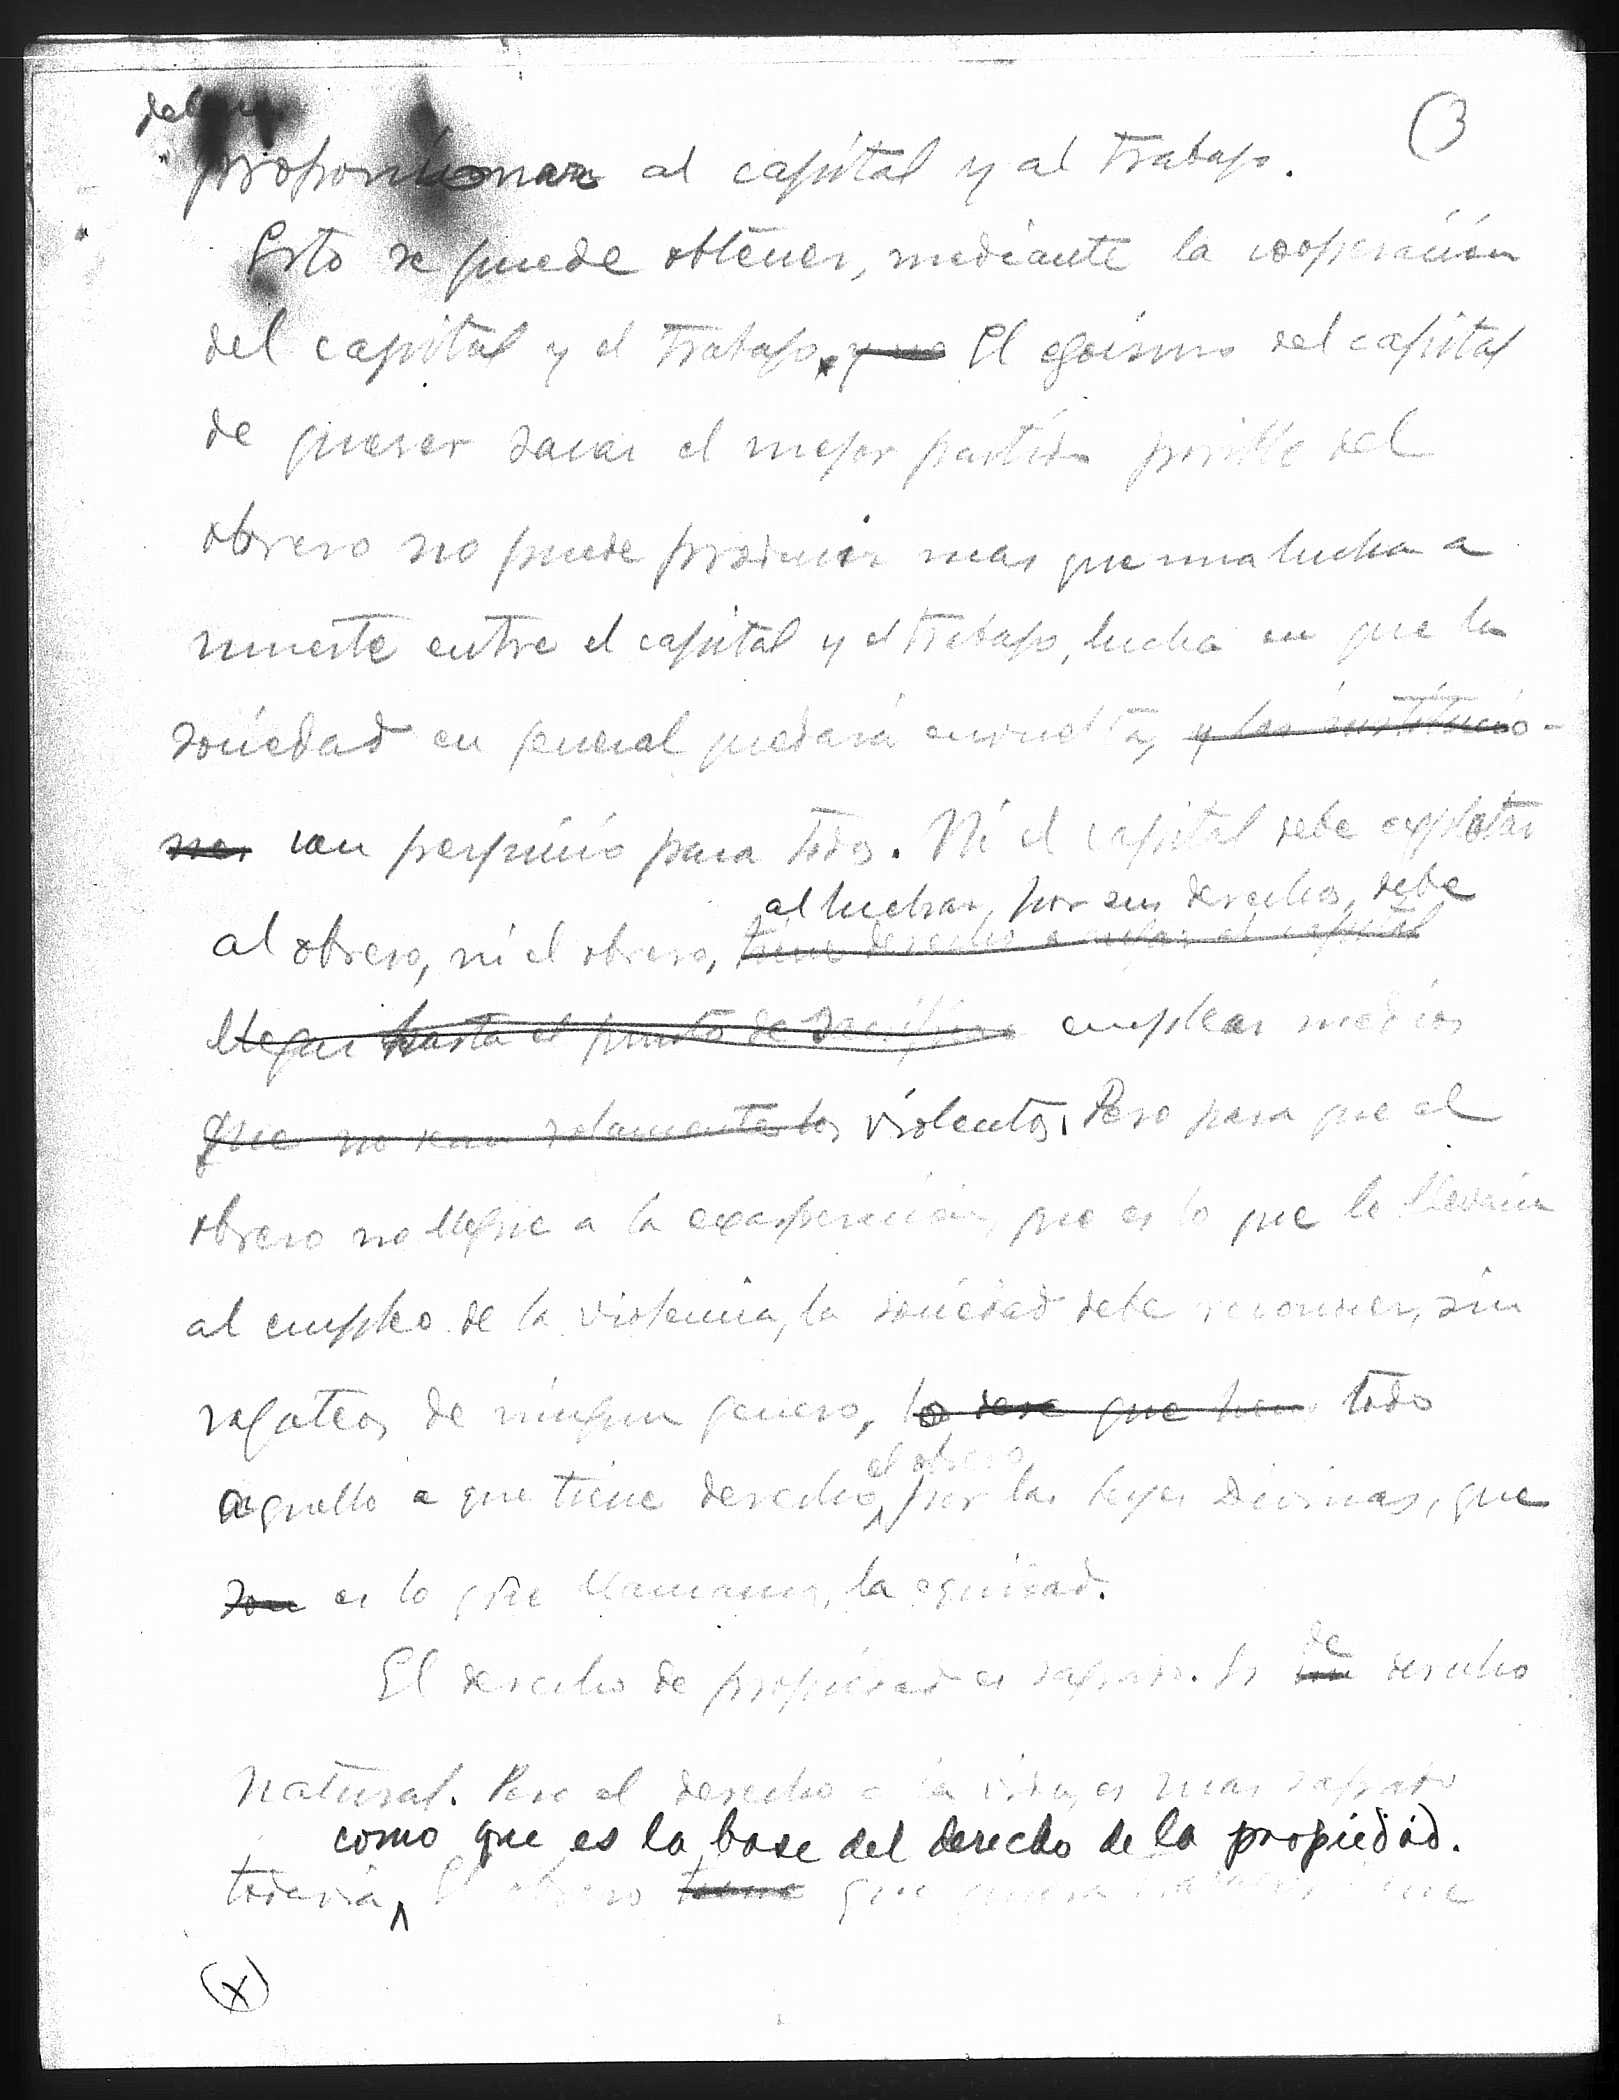 (3
proporcionar al capital y al trabajo.
Esto se puede obtener, mediante la cooperación
del capital y el trabajo, y no El egoismo del capital
de querer sacar el mejor partido posible del
obrero no puede producir mas que una lucha a
muerte entre el capital y el trabajo, lucha en que la
sociedad en general quedará envuelta, y las institucio-
nes con perjuicio para todos. Ni el capital debe explotar
al luchar, por sus derechos, debe
al obrero, ni el obrero, tiene derecho a el capital
llegar hasta el punto de emplear medios
que no sean solamente los violentos. Pero para que el
obrero no llegue a la exasperación, que es lo que le llevaria
al empleo de la violencia, la sociedad debe reconocer, sin
regateos de ningun genero, lo que todo
el obrero
aquello a que tiene derecho, por las leyes Divinas, que
son es lo que llamamos, la equidad.
de
El derecho de propiedad es sagrado. Es un derecho
natural. Pero el derecho a la vida, es mas sagrado
como que es la base del derecho de la propiedad.
todavia, El obrero tiene que quiera trabajar tiene
(x)